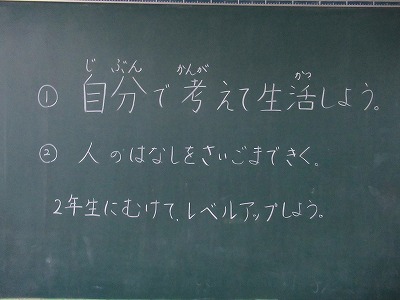 じ ぶん かんが かつ
① 自分で考えて生活しよう。
② 人のはなしをさいごまできく。
2年生にむけて、レベルアップしよう。